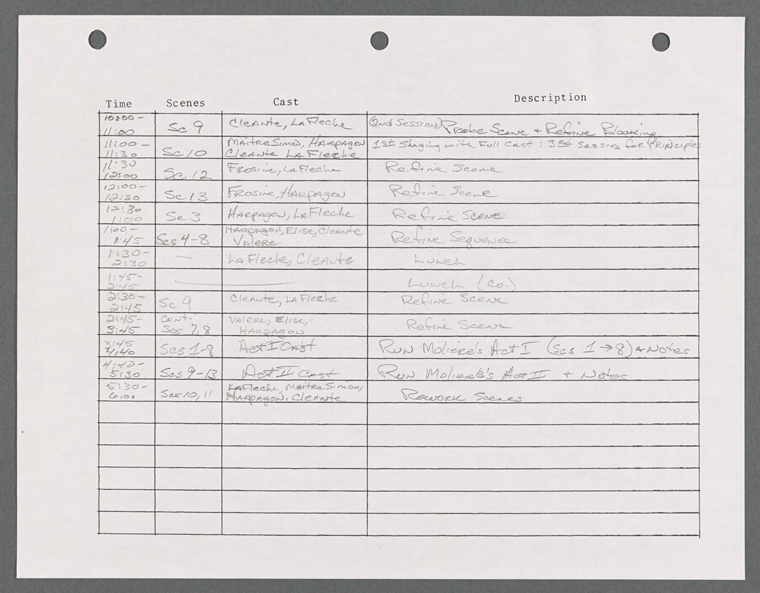 Time Scenes Cast Description
10:00-
11:00 Sc 9 Cleante, LaFleche (2nd Session) Probe Scene + Refine Blocking
11:00- Maitre Simon, Harpagon 1st Staging with Full Cast
11:30 Sc 10 Cleante LaFleche
11:30 Frosine, LaFleche Refine Scene
12:00 Sc 12
12:00- Frosine, Harpagon Refine Scene
12:30 Sc 13
12:30 Harpagon, LaFleche Refine Scene
1:00 Sc 3
1:00- Harpagon, Elise, Cleante
1:45 Scs 4-8 Valere Refine Sequence
1:30- — LaFleche, Cleante Lunch
2:30
1:45- — Lunch (Co.)
2:45
2:30- Cleante, LaFleche Refine Scene
2:45 Sc 9
2:45- Cont. Valere, Elise, Refine Scene
3:45 Scs 7,8 Harpagon
3:45 Act I Cast Run Moliere's Act I (Scs 1→8) + Notes
4:40 Scs 1-8
Act II Cast Run Moliere's Act II + Notes
5:30 Scs 9-13
5:30- LaFleche, Maitre Simon,
6:00 Scs 10, 11 Harpagon, Cleante Rework Scenes